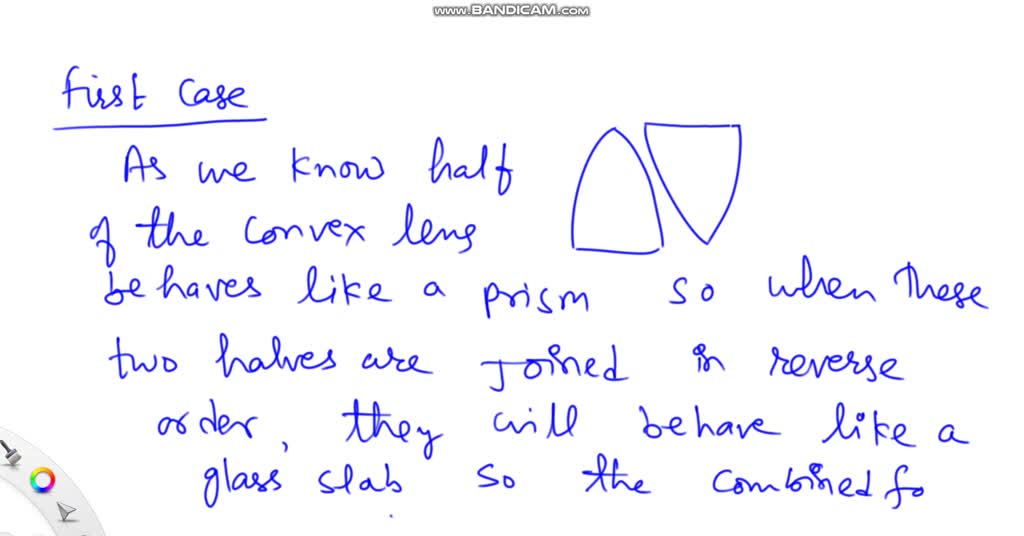 www.BANDICAM.com
first case
As we know half
of the convex lens
behaves like a prism so when these
two halves are Joined in reverse
order, they will behave like a
glass slab so the combined fo